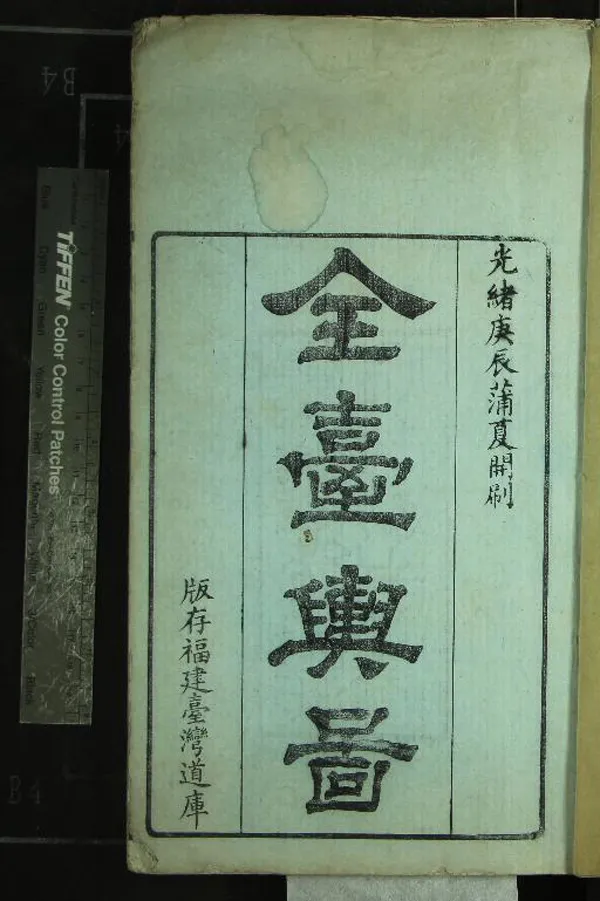 光緒庚辰蒲夏開刷
全臺輿啚
版存福建臺灣道庫
TIFFEN Color Control Patches
Blue
Cyan
Green
Yellow
Red
Magenta
White
Black
B4
B4